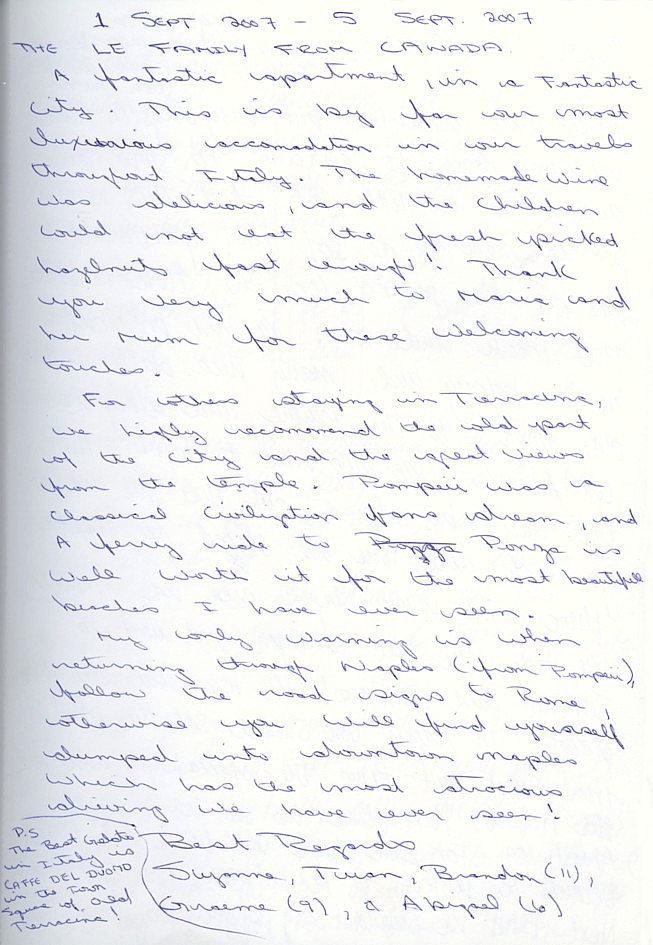 1 SEPT 2007 – 5 SEPT. 2007
THE LE FAMILY FROM CANADA.
A fantastic apartment, in a Fantastic
city. This is by far our most
luxurious accomodation in our travels
throughout Italy. The homemade wine
was delicious, and the children
could not eat the fresh picked
hazelnuts fast enough! Thank
you very much to Maria and
her Mum for these welcoming
touches.
For others staying in Terracina,
we highly recommend the old part
of the city and the great views
from the temple. Pompeii was a
classical civilization fans dream, and
A ferry ride to Ponza is
well worth it for the most beautiful
beaches I have ever seen.
My only warning is when
returning through Naples (from Pompeii),
follow the road signs to Rome,
otherwise you will find yourself
dumped into downtown naples
which has the most atrocious
driving we have ever seen!
Best Regards
Suzanne, Tuan, Brandon (11),
Graeme (9), & Abigael (6)
P.S
The Best Gelato
in Italy is
CAFFE DEL DUOMO
in the Town
Square of old
Terracina!